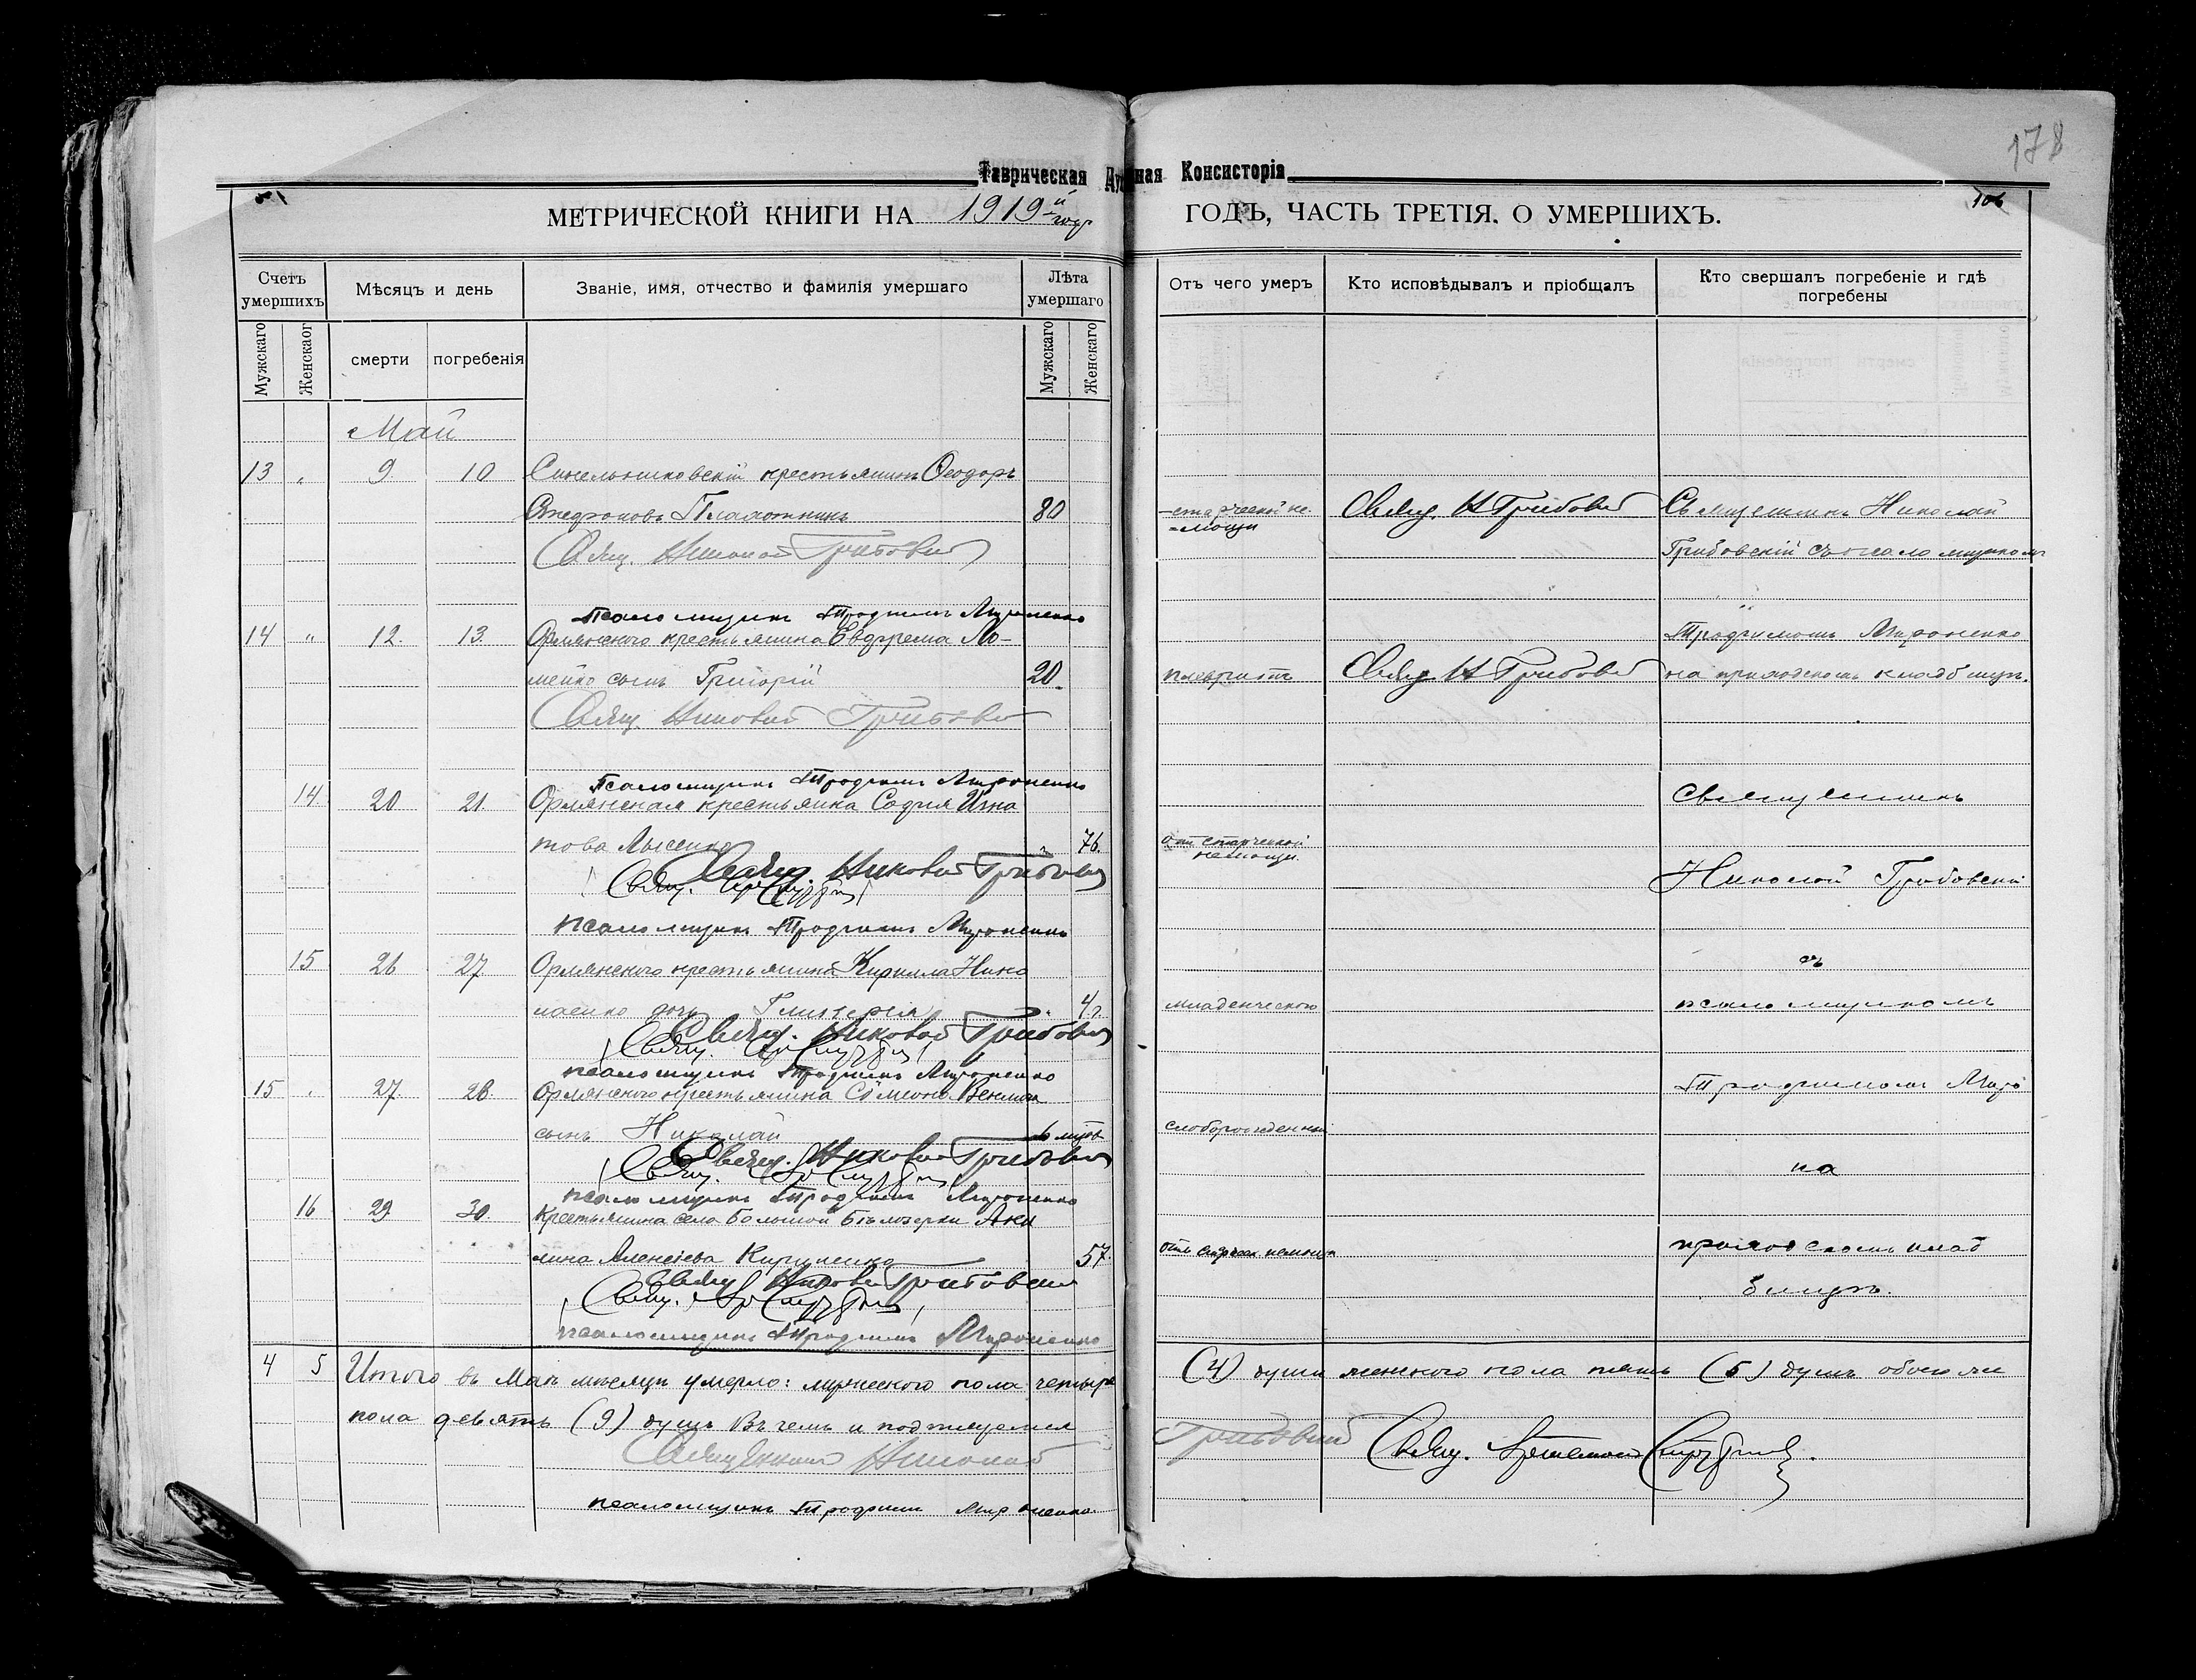 178
Таврическая Духовная Консисторія
51
106
МЕТРИЧЕСКОЙ КНИГИ НА 1919-й году ГОДЪ, ЧАСТЬ ТРЕТІЯ. О УМЕРШИХЪ.
Счетъ умершихъ
Мѣсяцъ и день
Званіе, имя, отчество и фамилія умершаго
Лѣта умершаго
Отъ чего умеръ
Кто исповѣдывалъ и пріобщалъ
Кто свершалъ погребеніе и гдѣ погребены
Мужскаго
Женскаго
смерти
погребенія
Мужскаго
Женскаго
Май
13 " 9. 10 Синельниковскій крестьянинъ Ѳеодоръ
Плахотникъ 80 старческой не-мощи Свящ. Н Грибовскій Священникъ Николай
Свящ. Николай Грибовскій Грибовскій съ псаломщикомъ
Псаломщикъ Трофимъ Мироненко
14 " 12. 13. Орлянского крестьянина Евфрема Ло-
Трофимомъ Мироненко
мейко сынъ Григорій 20. плевритъ Свящ Н Грибовскій на приходскомъ кладбищѣ.
Свящ Николай Грибовскій
Псаломщикъ Трофимъ Мироненко
14 20 21 Орлянская крестьянка Софія Игна
Священникъ
това Лысенко " 76. отъ старческой немощи
Свящ. Николай Грибовскій
Николай Грибовскій
псаломщикъ Трофимъ Мироненко
15 26 27 Орлянского крестьянина Кирилла Нико
съ
лаенко дочь Гликерія " 4 г. младенческого псаломщикомъ
Свящ. Николай Грибовскій
псаломщикъ Трофимъ Мироненко
15 " 27 28. Орлянского крестьянина Сѵмеона
Трофимомъ Миро
сынъ Николай слаборожденный
Свящ. Николай Грибовскій
на
псаломщикъ Трофимъ Мироненко
16 29 30 Села Большой Бѣлозерки Аки
лина Алексѣева Кириленко 57. отъ старческ немощи приходскомъ клад
Свящ Николай Грибовскій
бищѣ.
псаломщикъ Трофимъ Мироненко
4 5 Итого въ Маѣ мѣсяцѣ умерло: мужеского пола четыре (4) души женского пола пять (5) душъ обоего
пола девять (9) душъ Въ чемъ и подписуемся
Священникъ Николай Грибовскій Свящ.
псаломщикъ Трофимъ Мироненко